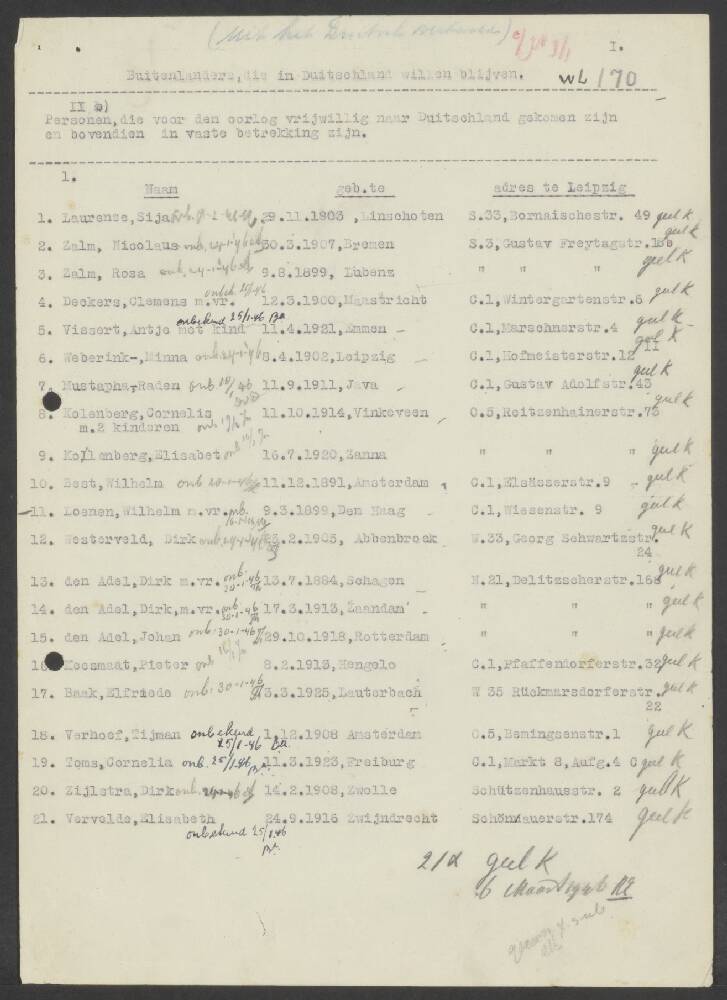 (Uit het Duitsch vertaald)
I.
Buitenlanders, die in Duitschland willen blijven. WL/70
II b)
Personen, die voor den oorlog vrijwillig naar Duitschland gekomen zijn
en bovendien in vaste betrekking zijn.
1.
Naam geb.te adres te Leipzig
1. Laurense, Sija onb. 29.11.1803 , Linschoten S.33, Bornaischestr. 49 geel K
2. Zalm, Nicolaus onb. 24-1-46 30.3.1907, Bremen S.3, Gustav Freytagstr. geel K
3. Zalm, Rosa onb. 24-1-46 9.8.1899, Lubenz " " " geel K
4. Deckers, Clemens m.vr. onbek 25/1-46 12.3.1900, Maastricht C.1, Wintergartenstr.6 geel K
5. Vissert, Antje met kind onbekend 25/1-46 Ba 11.4.1921, Emmen - C.1, Marschnerstr.4 geel K
6. Weberink-, Minna onb. 24-1-46 8.4.1902, Leipzig - C.1, Hofmeisterstr.12 II geel K
7. Mustapha, Raden onb 11.9.1911, Java - C.1, Gustav Adolfstr.43 geel K
8. Kolenberg, Cornelis 11.10.1914, Vinkeveen O.5, Reitzenhainerstr.73 geel K
m.2 kinderen onb
9. Kollenberg, Elisabet onb 16.7.1920, Zanna " " " geel K
10. Best, Wilhelm onb 11.12.1891, Amsterdam C.1, Elsässerstr.9 - geel K
11. Loenen, Wilhelm m.vr. onb. 9.3.1899, Den Haag C.1, Wiesenstr. 9 geel K
12. Westerveld, Dirk onb. 23.2.1905, Abbenbroek W.33, Georg Schwartzstr. geel K
24
13. den Adel, Dirk m.vr. onb. 30-1-46 13.7.1884, Schagen N.21, Delitzscherstr.168 geel K
14. den Adel, Dirk, m.vr. onb. 30-1-46 17.3.1913, Zaandam - " " " geel K
15. den Adel, Johan onb. 30-1-46 29.10.1918, Rotterdam " " " geel K
16 Koosmaat, Pieter onb 8.2.1913, Hengelo C.1, Pfaffendorferstr.32 geel K
17. Baak, Elfriede onb. 30-1-46 3.3.1925, Lauterbach W 35 Rückmarsdorferstr. geel K
22
18. Verhoef, Tijman onbekend 25/1-46 Ba. 1.12.1908 Amsterdam O.5, Bemingsenstr.1 geel K
19. Toms, Cornelia onb. 25/1-46 11.3.1923, Freiburg C.1, Markt 8, Aufg.4 C geel K
20. Zijlstra, Dirk onb. 14.2.1908, Zwolle Schützenhausstr. 2 geel K
21. Vervelde, Elisabeth 24.9.1916 Zwijndrecht Schönauerstr.174 geel K
onbekend 25/1-46
21 x geel K
6 Maart 1946